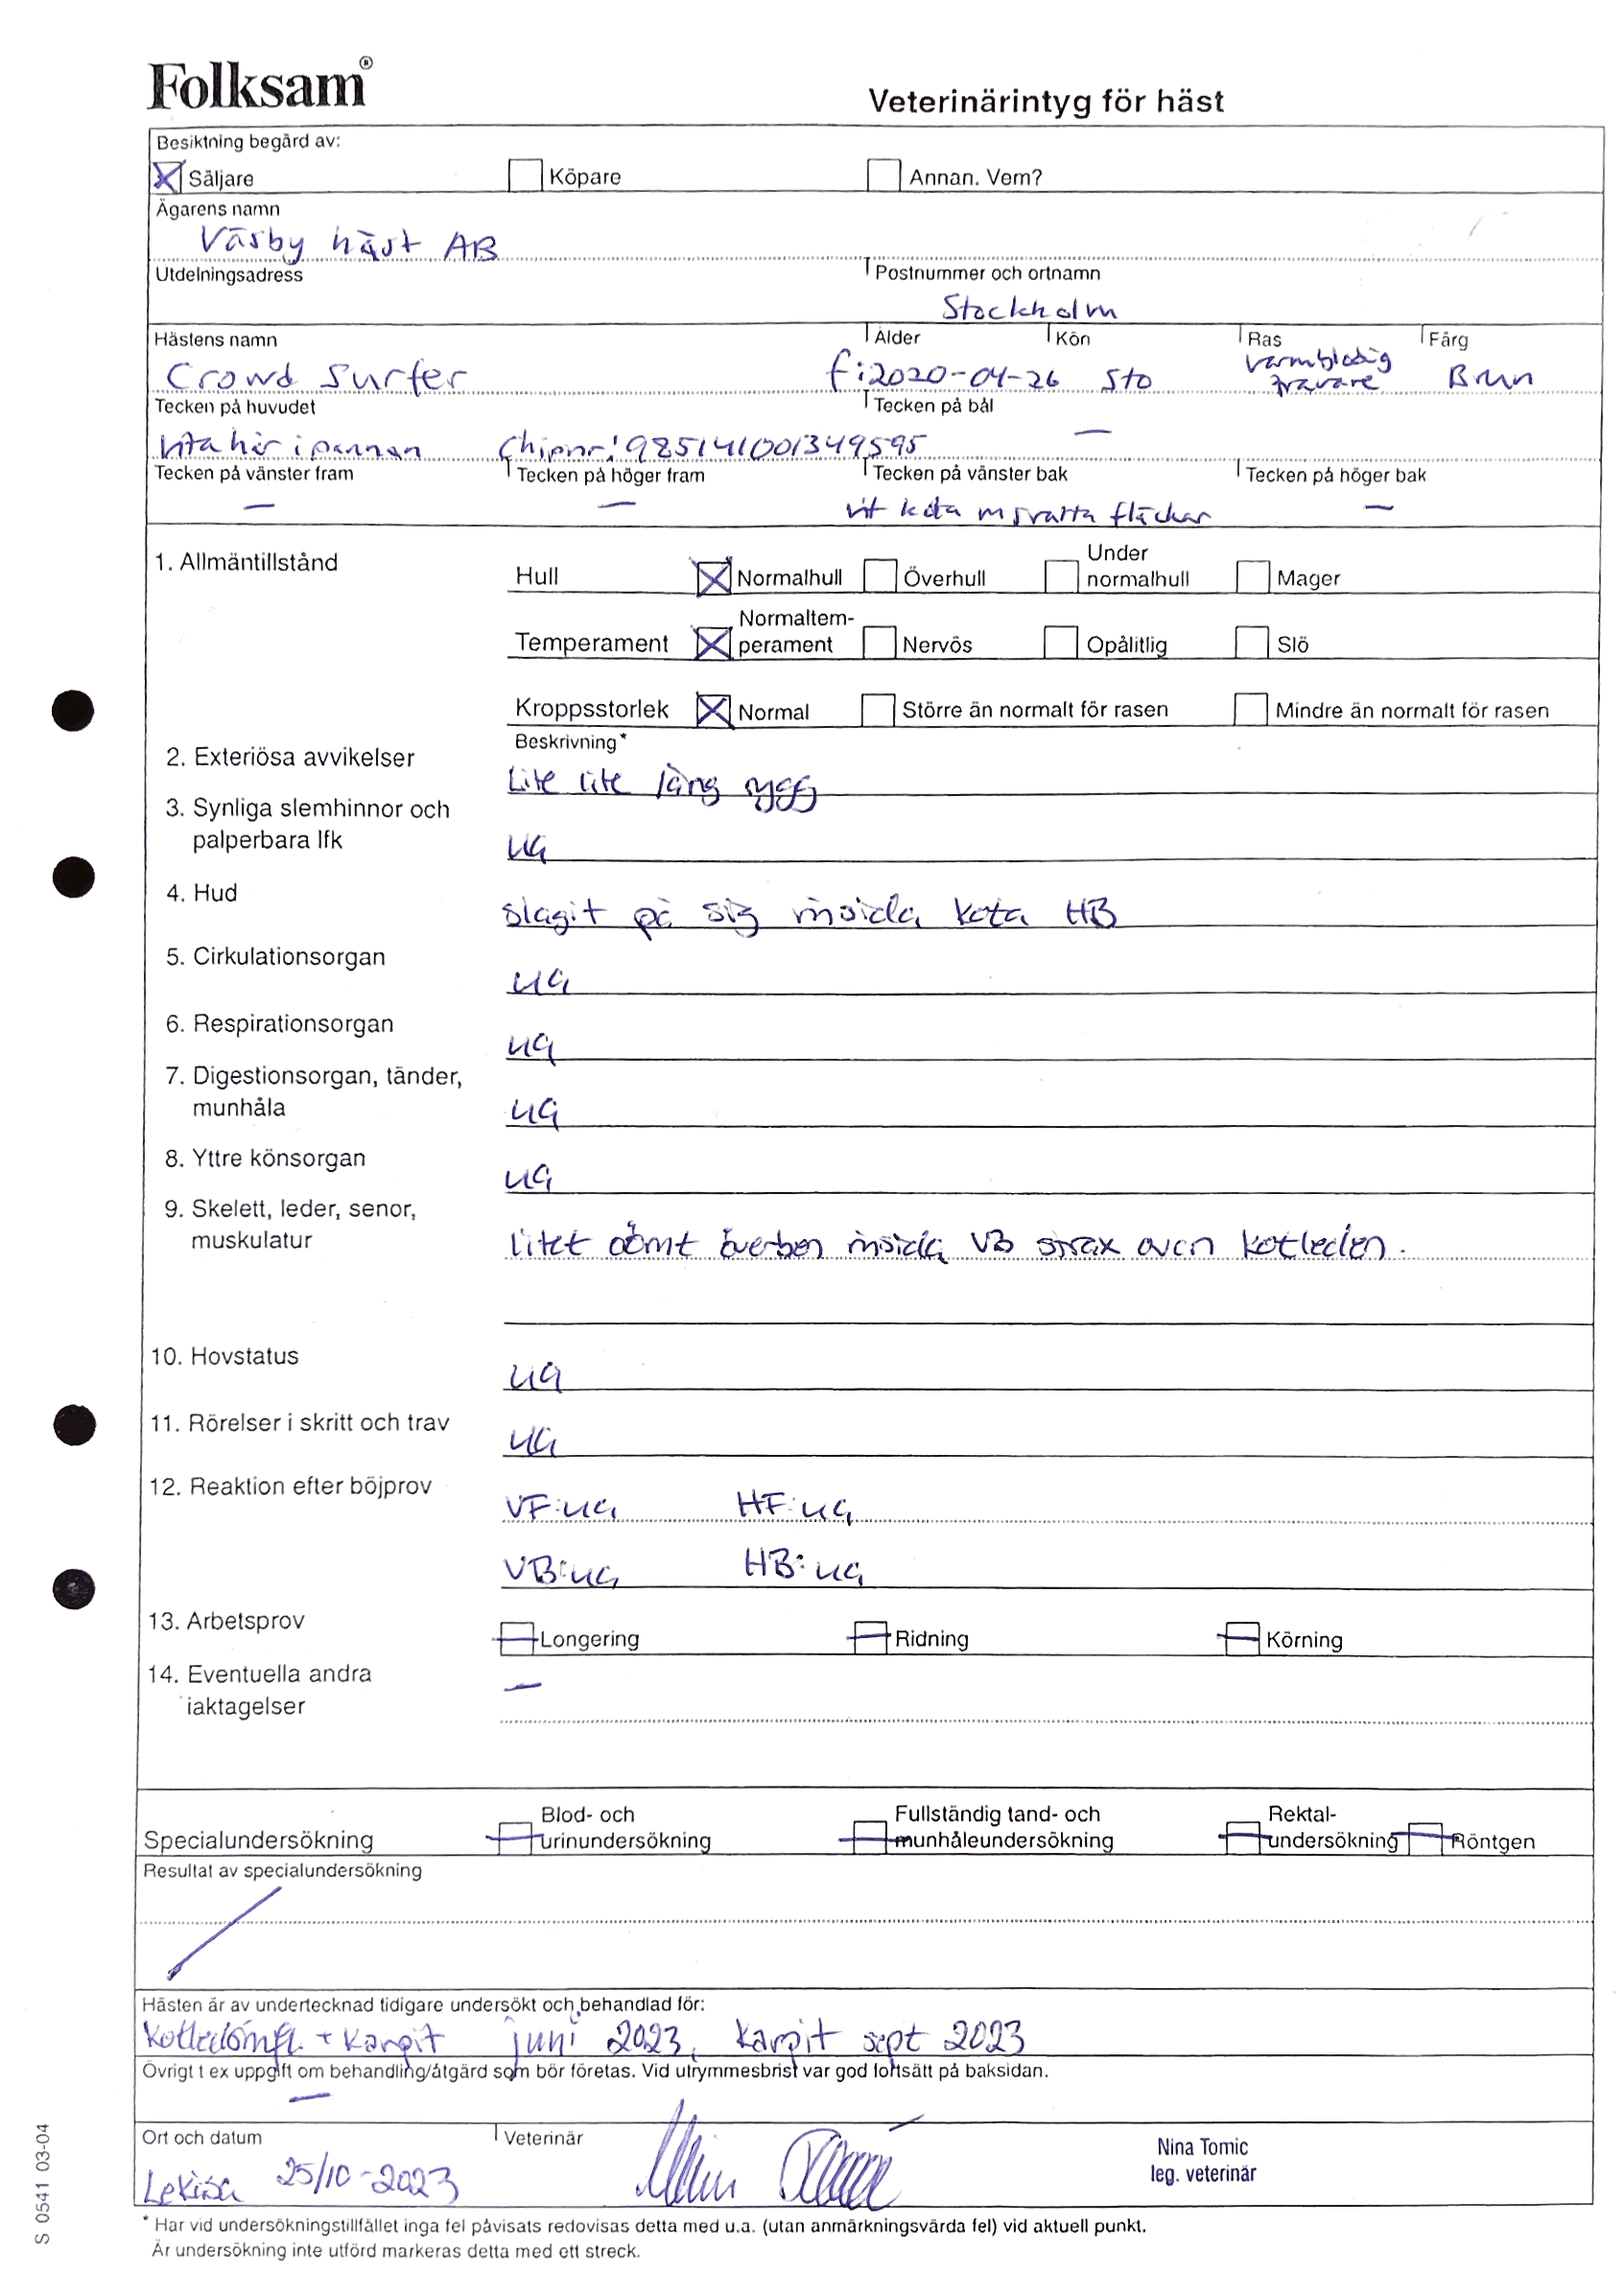 Folksam®
Veterinärintyg för häst
Besiktning begärd av:
Säljare Köpare Annan. Vem?
Ägarens namn
Väsby häst AB
Utdelningsadress Postnummer och ortnamn
Stockholm
Hästens namn Ålder Kön Ras Färg
Crowd Surfer f:2020-04-26 sto varmblodig travare Brun
Tecken på huvudet Tecken på bål
Vita hår i pannan Chipnr: 985141001349595 —
Tecken på vänster fram Tecken på höger fram Tecken på vänster bak Tecken på höger bak
— — vit kota m svarta fläckar —
1. Allmäntillstånd
Hull Normalhull Överhull Under normalhull Mager
Temperament Normaltem-perament Nervös Opålitlig Slö
Kroppsstorlek Normal Större än normalt för rasen Mindre än normalt för rasen
Beskrivning*
2. Exteriösa avvikelser Lite lite lång rygg
3. Synliga slemhinnor och
palperbara lfk ua
4. Hud slagit på sig insida kota HB
5. Cirkulationsorgan ua
6. Respirationsorgan ua
7. Digestionsorgan, tänder,
munhåla ua
8. Yttre könsorgan ua
9. Skelett, leder, senor,
muskulatur litet oömt överben insida VB strax ovan kotleden.
10. Hovstatus ua
11. Rörelser i skritt och trav ua
12. Reaktion efter böjprov VF: ua HF: ua
VB: ua HB: ua
13. Arbetsprov Longering Ridning Körning
14. Eventuella andra —
iaktagelser
Specialundersökning Blod- och urinundersökning Fullständig tand- och munhåleundersökning Rektal-undersökning Röntgen
Resultat av specialundersökning
Hästen är av undertecknad tidigare undersökt och behandlad för:
Kotledsinfl. + Karpit juni 2023, Karpit sept 2023
Övrigt t ex uppgift om behandling/åtgärd som bör företas. Vid utrymmesbrist var god fortsätt på baksidan.
—
Ort och datum Veterinär
25/10-2023
Nina Tomic
leg. veterinär
* Har vid undersökningstillfället inga fel påvisats redovisas detta med u.a. (utan anmärkningsvärda fel) vid aktuell punkt.
Är undersökning inte utförd markeras detta med ett streck.
S 0541 03-04